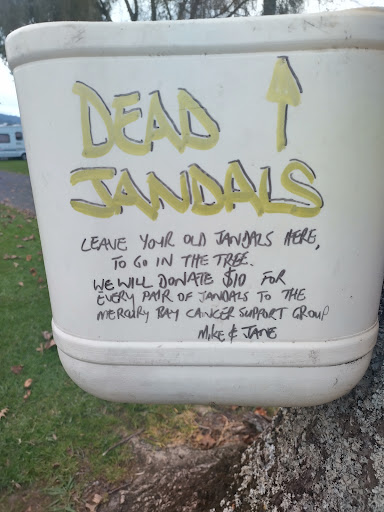 DEAD
JANDALS
LEAVE YOUR OLD JANDALS HERE,
TO GO IN THE TREE.
WE WILL DONATE $10 FOR
EVERY PAIR OF JANDALS TO THE
MERCURY BAY CANCER SUPPORT GROUP
MIKE & JANE